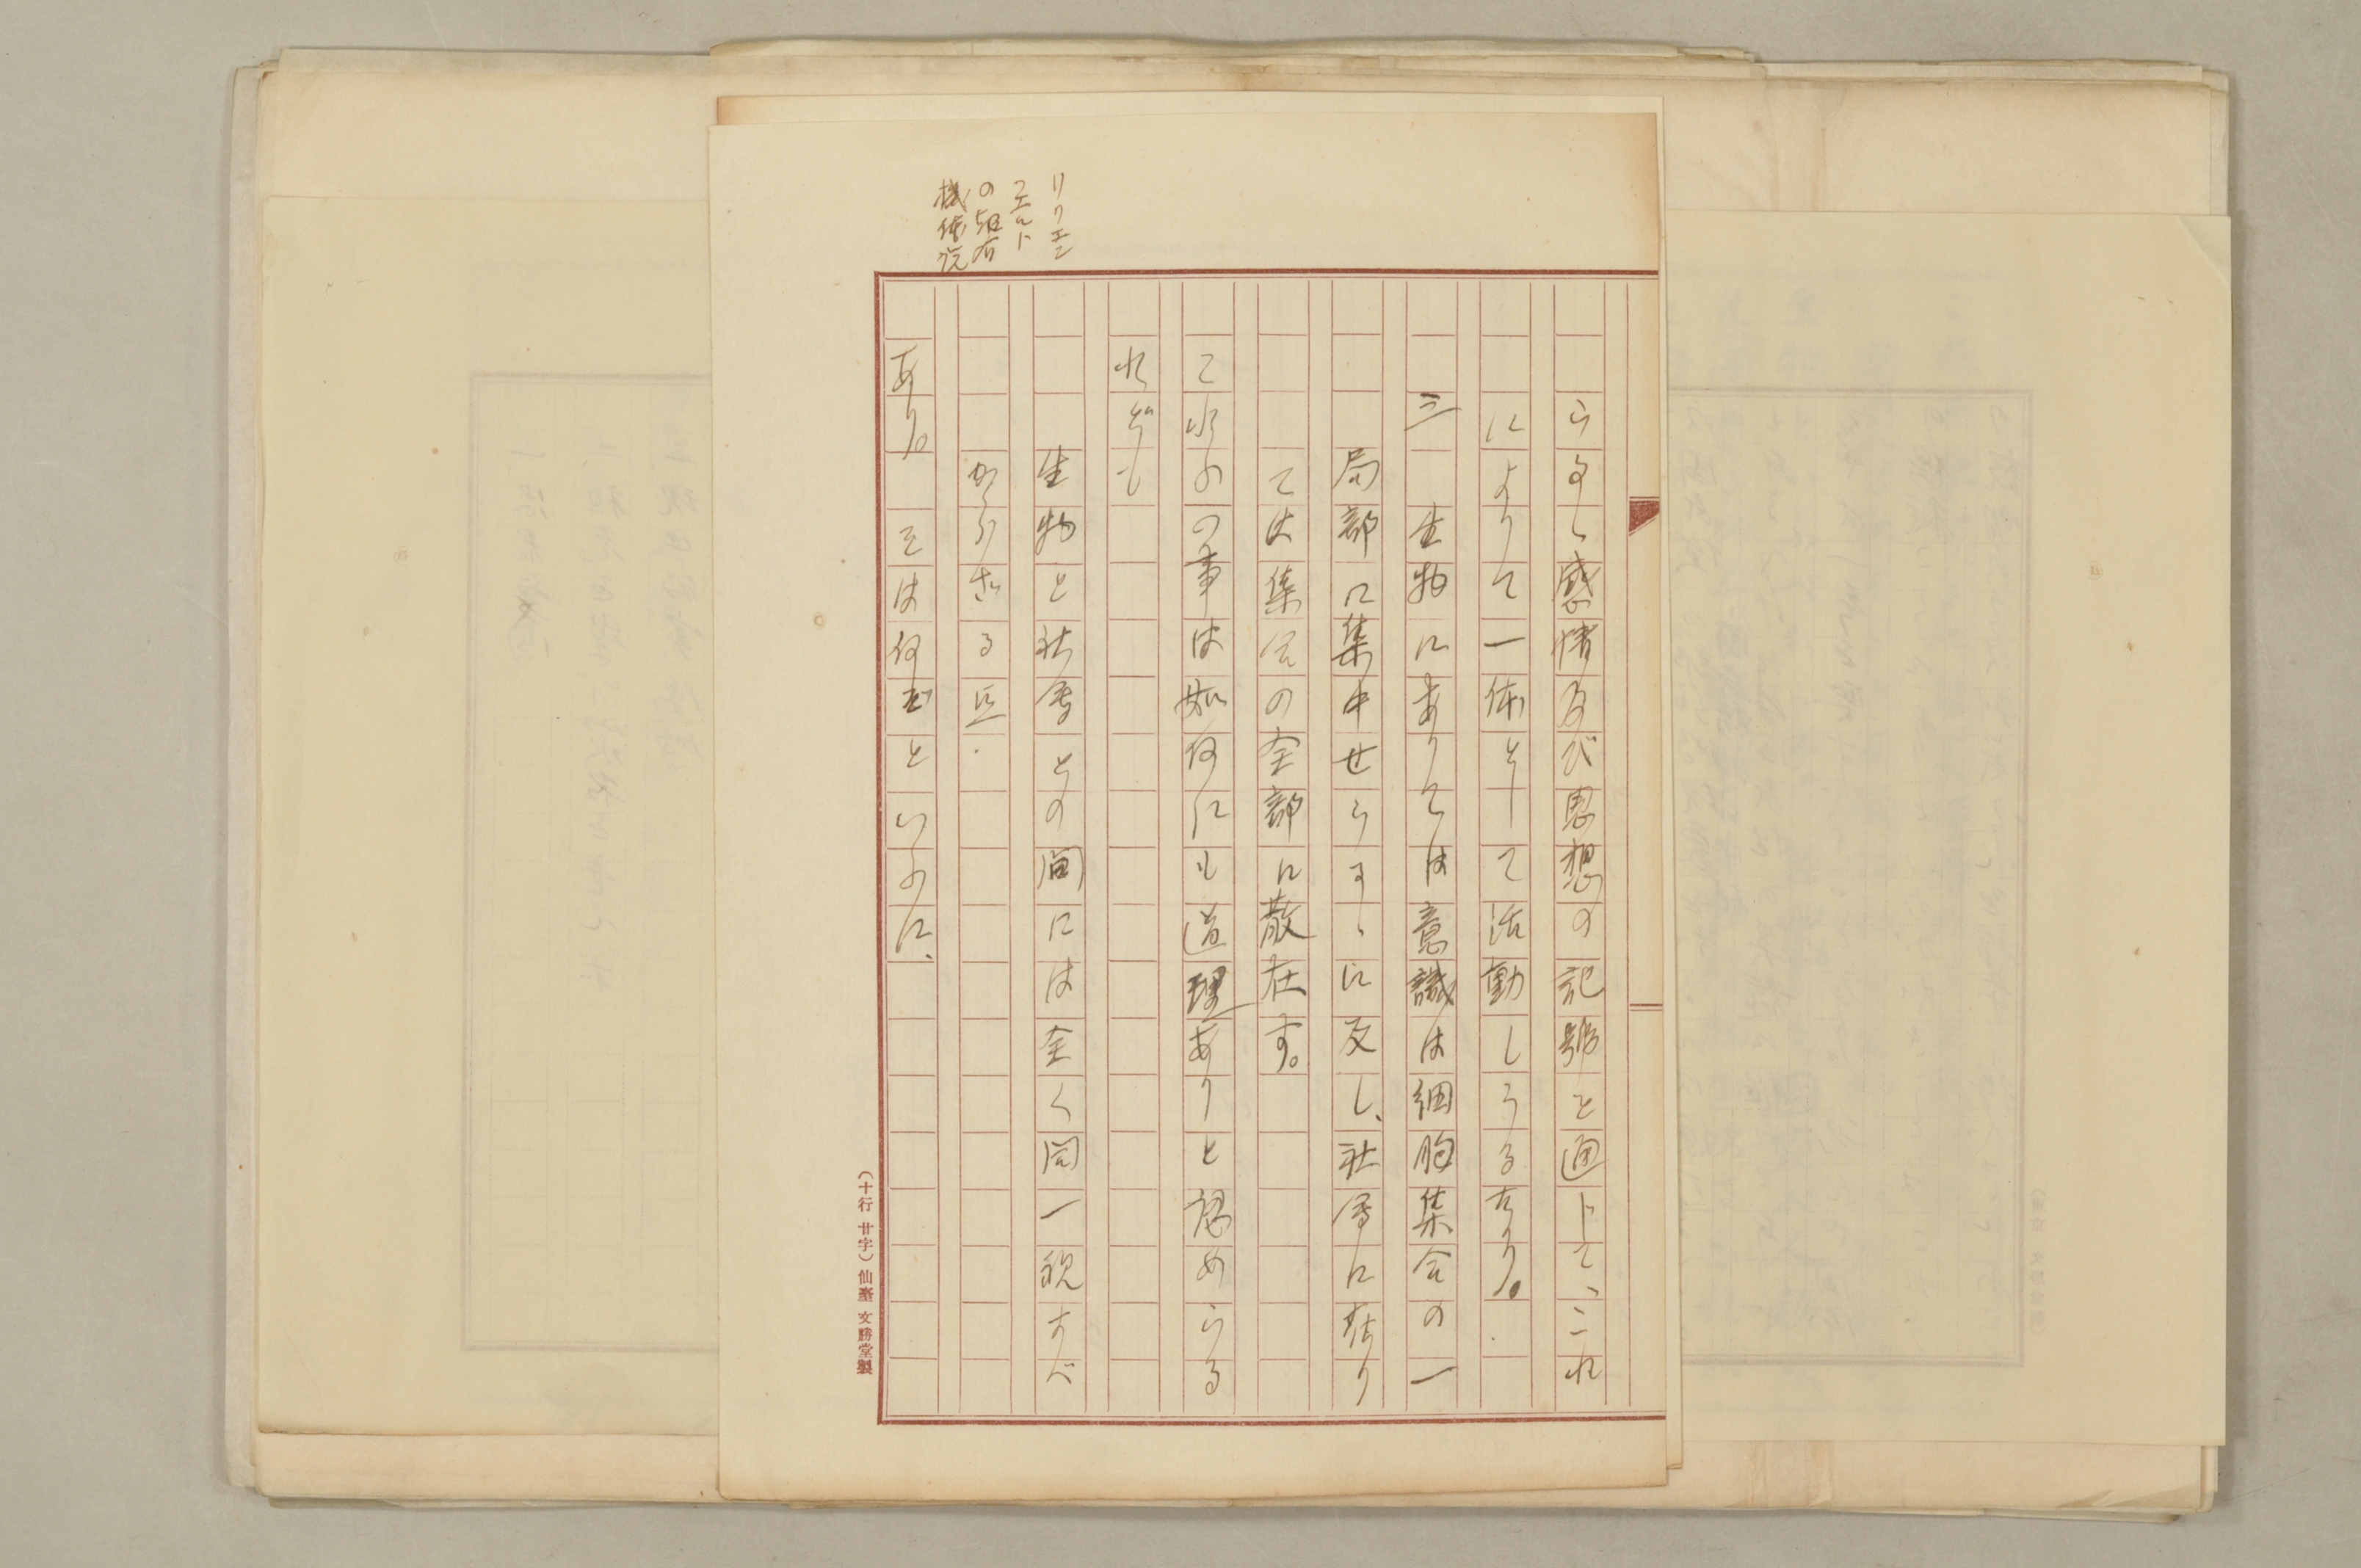 らるゝ感情及び思想の記號を通して、これ
によりて一体として活動しうるなり。
三 生物にありては意識は細胞集合の一
局部に集中せらるゝに反し、社會に在り
ては集合の全部に散在す。
これらの事は如何にも道理ありと認めらる
れども
生物と社會との間には全く同一視すべ
からざる点
あり。そは何ぞといふに、
リリエン
フェルト
の超有
機体説
(十行 廿字) 仙臺 文勝堂製